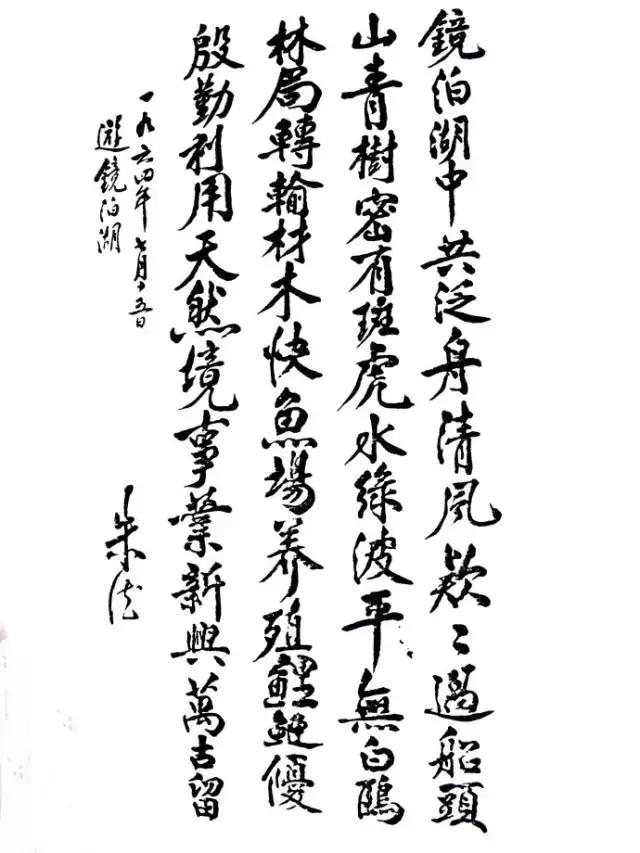 鏡泊湖中共泛舟清風欵〻過船頭
山青樹密有斑虎水綠波平無白鷗
林局轉輸材木快魚場养殖鯉鰱優
殷勤利用天然境事業新興萬古留
一九六四年七月十五日
遊鏡泊湖
朱德